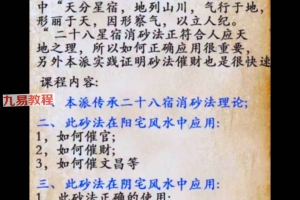 中“天分星宿，地列山川，气行于地，
形丽于天，因形察气，以立人纪。
“二十八星宿消砂法正符合人应天
地之理，所以如何正确应用很重要，
另外本派实践证明砂法催财也是很快速
课程内容:
一、本派传承二十八宿消砂法理论;
二、此砂法在阳宅风水中应用:
1，如何催官;
2，如何催财;
3，如何催文昌等
三、此砂法在阴宅风水中应用:
1，此砂法正确的使用;
九易教程
www.9181w.com